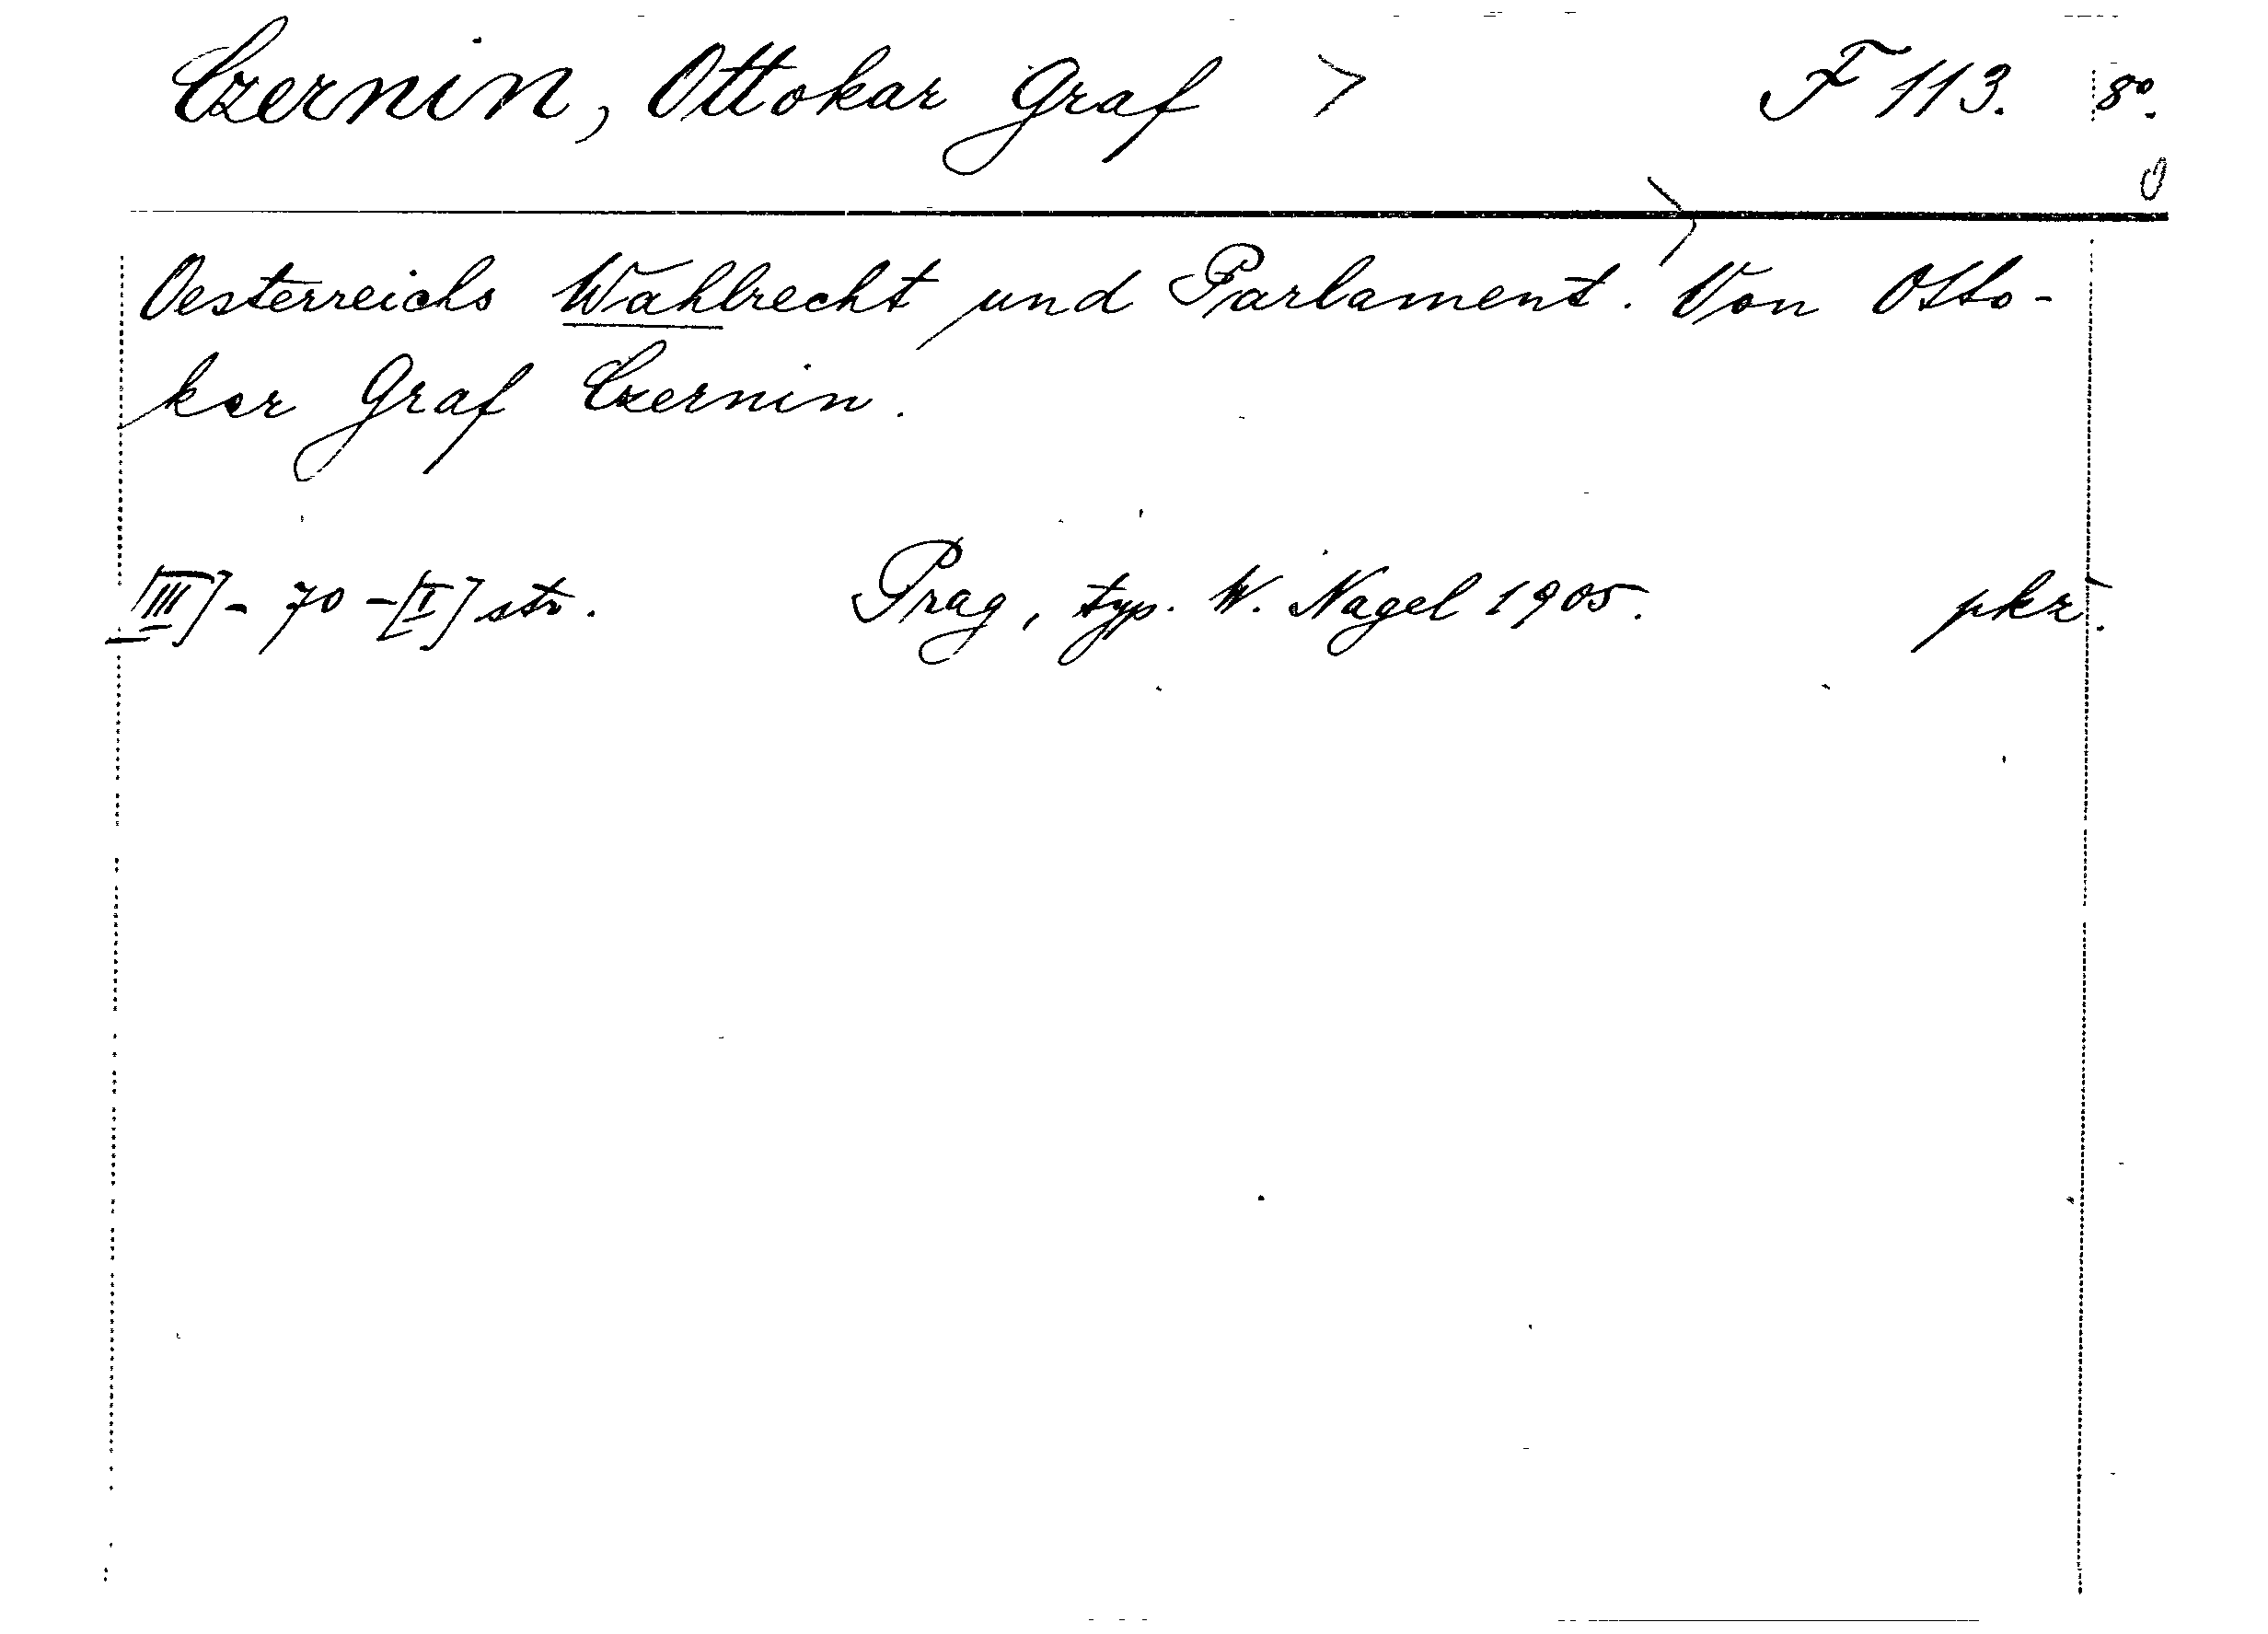 Czernin, Ottokar Graf > F 113. 8°.
Oesterreichs Wahlrecht und Parlament. Von Otto-
kar Graf Czernin.
[III] - 70 - [I] str. Prag, typ. W. Nagel 1905. pkř.